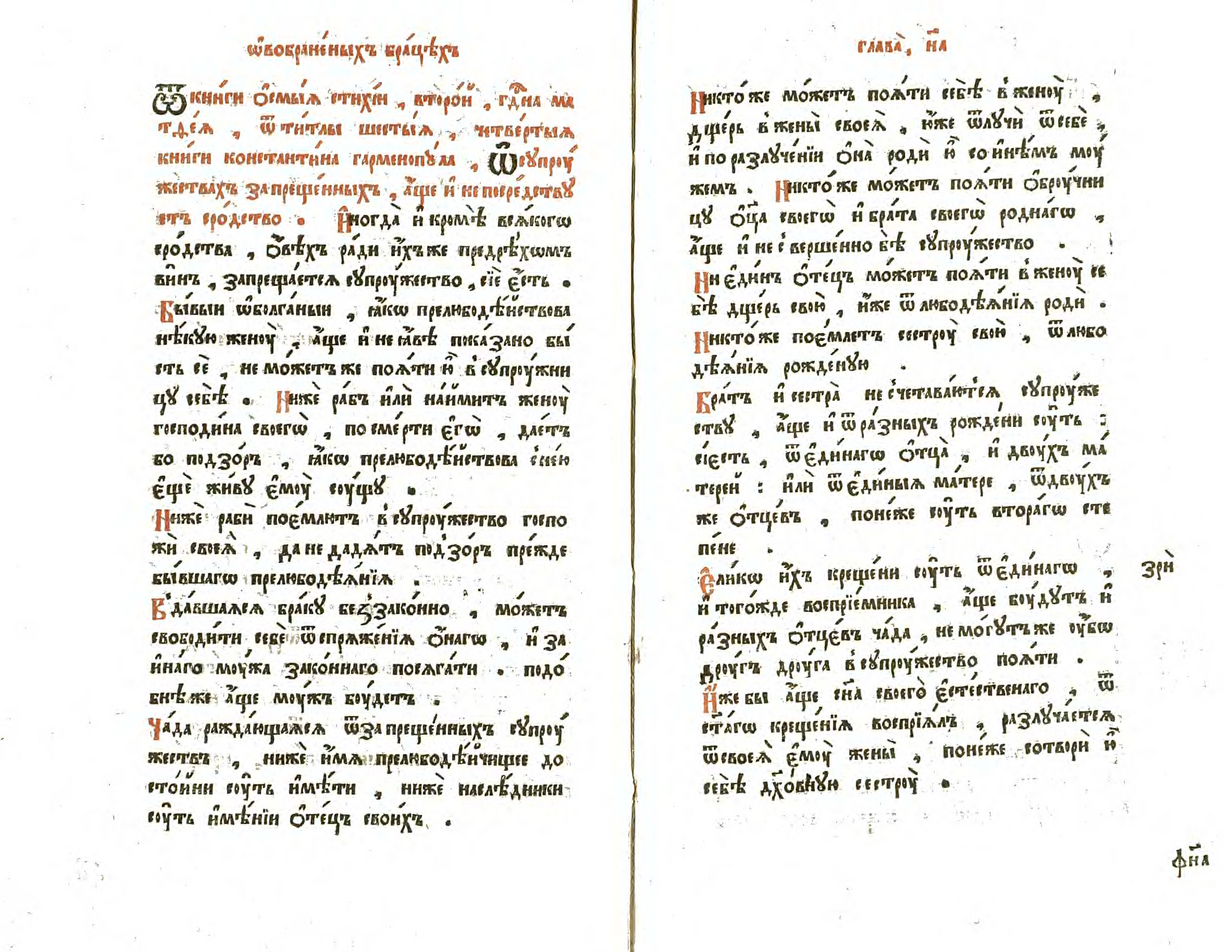 ѡ҆возбране́ныхъ бра́цѣхъ
Ѿ кни́ги ѻ҆смы́ѧ стихі́и , второ́й , гд҇на ма
тѳе́ѧ , ѿ ти́тлы шесты́ѧ , читве́ртыѧ
кни́ги константи́на гармено́пꙋла , Ѡ҆ сꙋпрꙋ́
жествахъ запреще́нныхъ , а҆́ще и҆ не посре́дствꙋ
етъ сро́дство . И҆ногда̀ и҆ кро́мѣ всѧ́когѡ
сро́дства , ѻ҆́вѣхъ ра́ди и҆́хъже предре́хомъ
ви́нъ , запреща́етсѧ сꙋпрꙋ́жество , сіѐ є҆́сть .
Бы́выи ѡ҆болга́ныи , ꙗ҆́кѡ прелюбодѣ́йствова
нѣ́кꙋю женꙋ̀ , а҆́ще и҆ не ꙗ҆́вѣ пока́зано бы́
сть сѐ , не мо́жетъ же поѧ́ти ю҆̀ в сꙋпрꙋ́жни
цꙋ себѣ̀ . Нижѐ ра́бъ и҆лѝ наи́митъ женꙋ̀
господи́на своегѡ̀ , по сме́рти є҆гѡ̀ , дае́тъ
бо подзо́ръ , ꙗ҆́кѡ прелюбодѣ́йствова с не́ю
є҆щѐ жи́вꙋ є҆мꙋ̀ сꙋ́щꙋ .
Нижѐ рабѝ пое́млютъ в сꙋпрꙋ́жество госпо
жѝ своеѧ̀ , да не дадѧ́тъ подзо́ръ пре́жде
бы́вшагѡ прелюбодѣѧ́нїѧ .
В да́вшаѧсѧ бра́кꙋ без̾зако́нно , мо́жетъ
свободи́ти себѐ ѿ спрѧже́нїѧ ѻ҆́нагѡ , и҆ за
и҆́наго мꙋ́жа зако́ннаго посѧга́ти . подо́
бнѣ же а҆́ще мꙋ́жъ бꙋ́детъ .
Ча́да ражда́ющаѧсѧ ѿ запреще́нныхъ сꙋпрꙋ́
жествъ , нижѐ и҆́мѧ прелюбодѣ́йчищее до
сто́йни сꙋ́ть и҆мѣ́ти , нижѐ наслѣ́дники
сꙋ́ть и҆мѣ́нїи ѻ҆те́цъ свои́хъ .
глава̀ , н҃а
Никто́же мо́жетъ поѧ́ти себѣ̀ в женꙋ̀ ,
дще́рь в жены̀ своеѧ̀ , ю҆́же ѿлꙋчѝ ѿ себѐ ,
и҆ по разлꙋче́нїи ѻ҆на̀ родѝ ю҆̀ со и҆нѣ́мъ мꙋ́
жемъ . Никто́же мо́жетъ поѧ́ти ѻ҆брꙋ́чни
цꙋ ѻ҆ц҃а̀ своегѡ̀ и҆ бра́та своегѡ̀ ро́днагѡ ,
а҆́ще и҆ не с̾верше́нно бѣ̀ сꙋпрꙋ́жество .
Ни є҆ди́нъ ѻ҆те́цъ мо́жетъ поѧ́ти в женꙋ̀ се
бѣ̀ дще́рь свою̀ , ю҆́же ѿ любодѣѧ́нїѧ родѝ .
Никто́же пое́млетъ сестрꙋ̀ свою̀ , ѿ любо
дѣѧ́нїѧ рожде́нꙋю .
Бра́тъ и҆ сестра̀ не с̾четава́ютсѧ сꙋпрꙋ́же
ствꙋ , а҆́ще и҆ ѿ ра́зныхъ рожде́ни сꙋ́ть :
сіе́сть , ѿ є҆ди́нагѡ ѻ҆тца̀ , и҆ двои́хъ ма́
терей : и҆лѝ ѿ є҆ди́ныѧ ма́тере , ѿ двои́хъ
же ѻ҆тце́въ , поне́же сꙋ́ть втора́гѡ сте́
пене .
Є҆ли́кѡ и҆́хъ креще́ни сꙋ́ть ѿ є҆ди́нагѡ ,
и҆ того́жде воспріе́мника , а҆́ще бꙋ́дꙋтъ и҆
ра́зныхъ ѻ҆тце́въ ча́да , не мо́гꙋтъ же ᲂу҆́бѡ
дрꙋ́гъ дрꙋ́га в сꙋпрꙋ́жество поѧ́ти .
И҆́же бы а҆́ще сн҃а своего̀ є҆сте́ственаго , ѿ
ст҃а́гѡ креще́нїѧ воспрїѧ́лъ , разлꙋча́етсѧ
ѿ своеѧ̀ є҆мꙋ̀ жены̀ , поне́же сотворѝ ю҆̀
себѣ̀ дꙋхо́внꙋю сестрꙋ̀ .
зрѝ
фн҃а